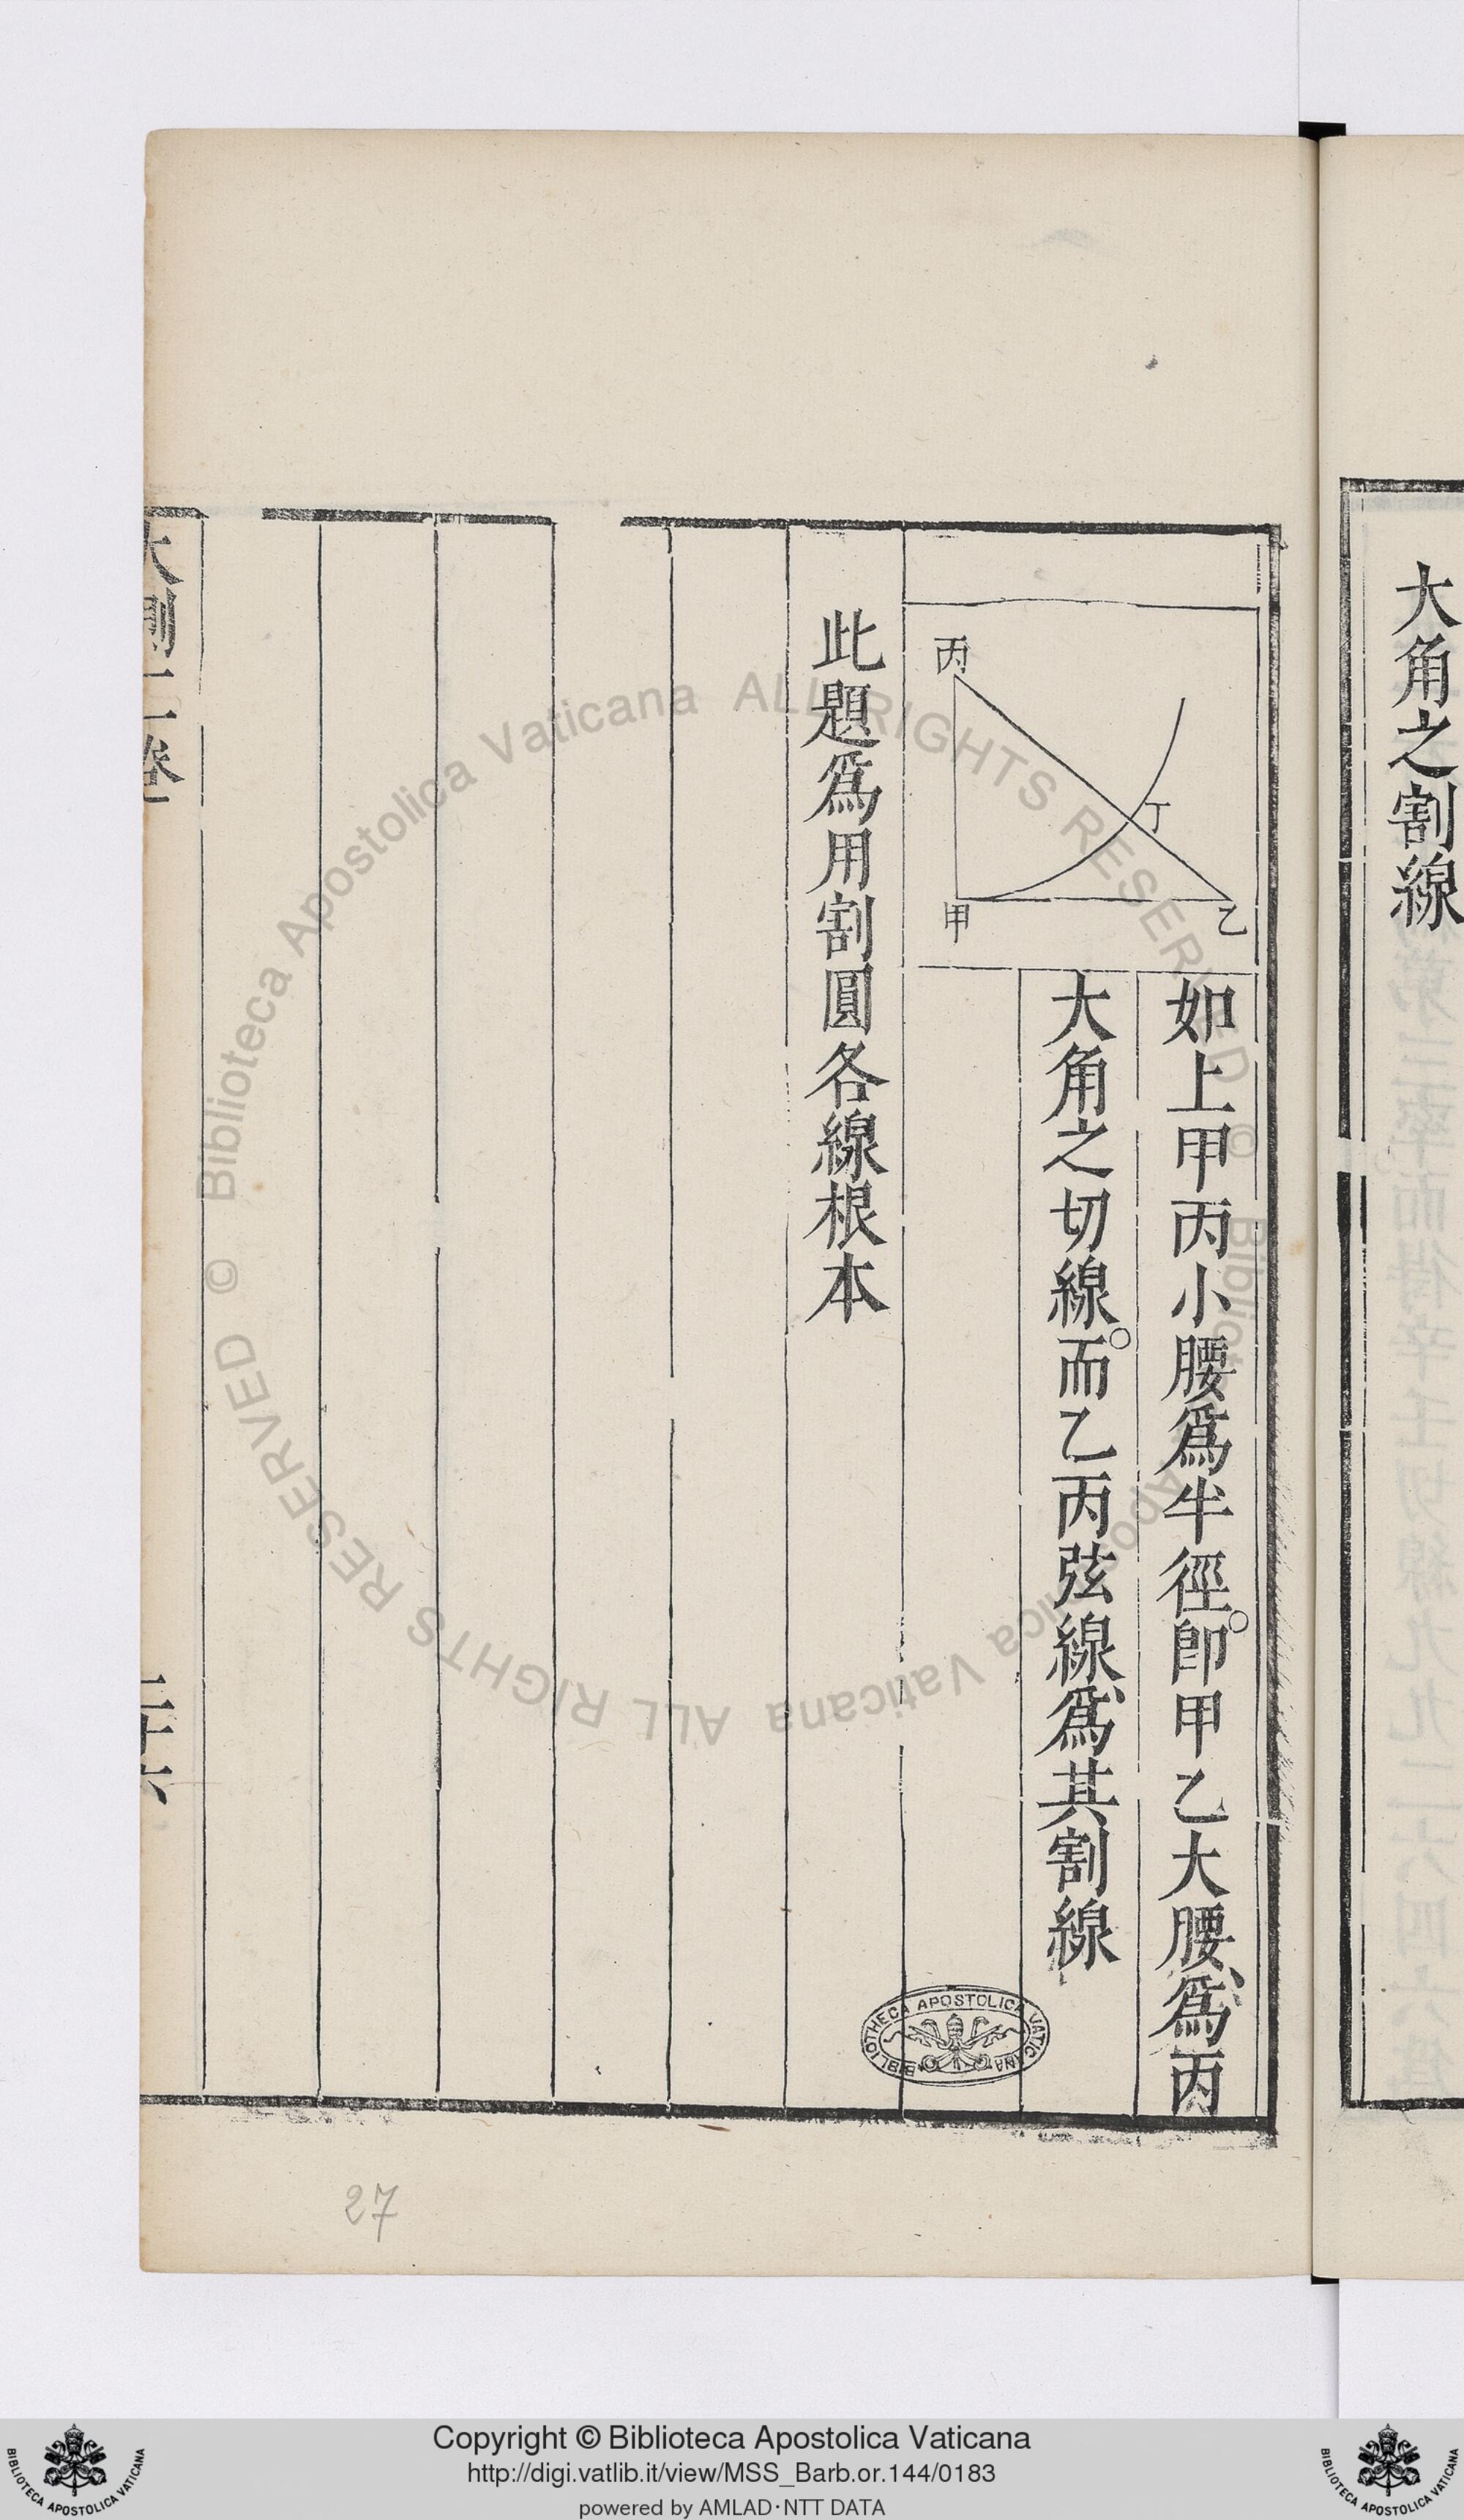 大角之割線
丙
丁
甲
乙
如上甲丙小腰爲半徑○卽甲乙大腰爲丙
大角之切線○而乙丙弦線爲其割線
此題爲用割圓各線根本
大測二卷
二十六
27
BIBLIOTHECA APOSTOLICA VATICANA
© Biblioteca Apostolica Vaticana ALL RIGHTS RESERVED © Biblioteca Apostolica Vaticana ALL RIGHTS RESERVED
Copyright © Biblioteca Apostolica Vaticana
http://digi.vatlib.it/view/MSS_Barb.or.144/0183
powered by AMLAD·NTT DATA
BIBLIOTHECA APOSTOLICA VATICANA
BIBLIOTHECA APOSTOLICA VATICANA